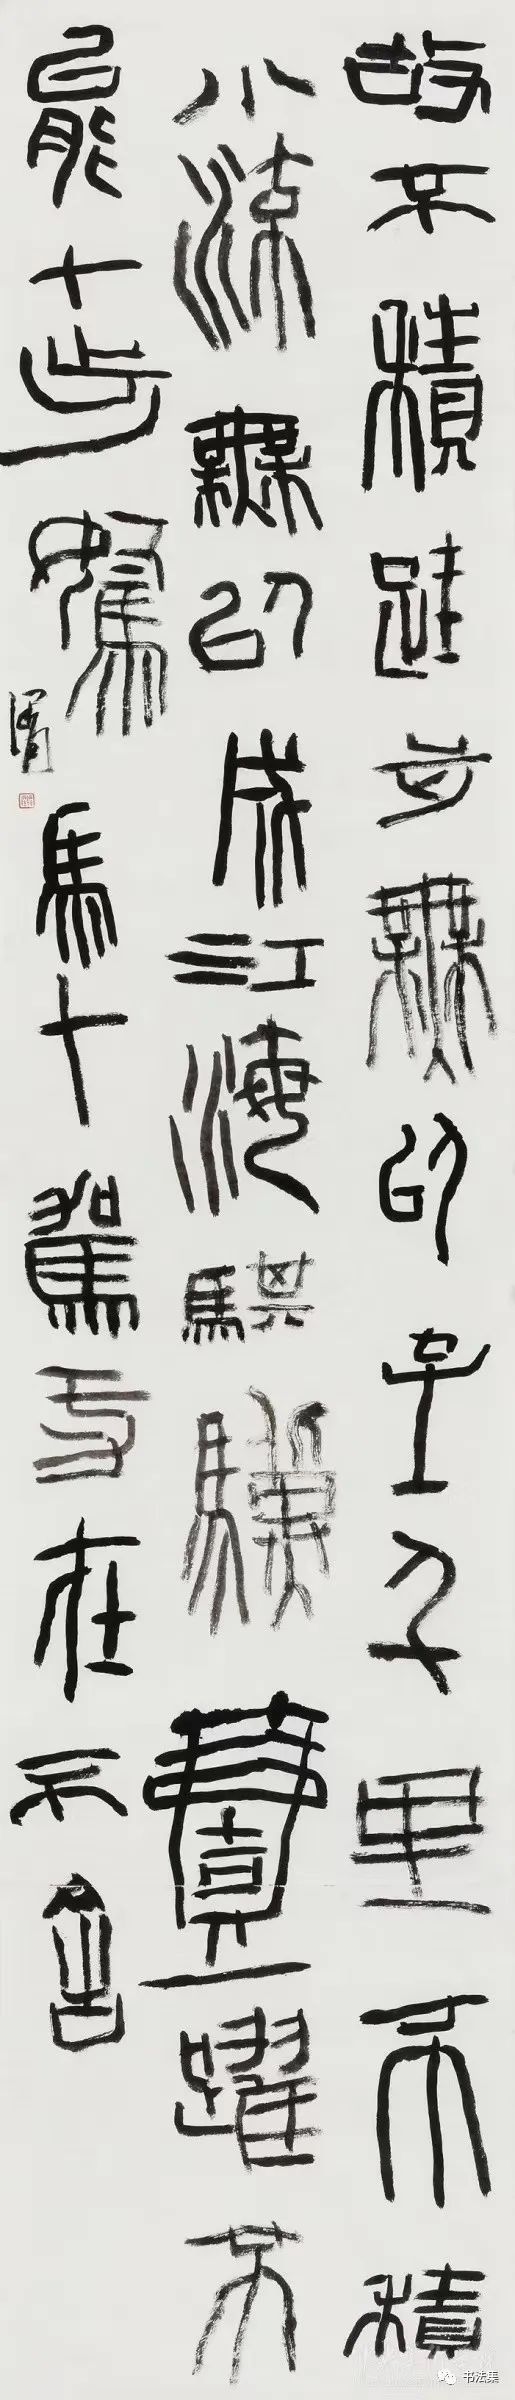 故不積跬步無以至千里不積
小流無以成江海騏驥壹躍不
能十步駑馬十駕功在不舍
书法集